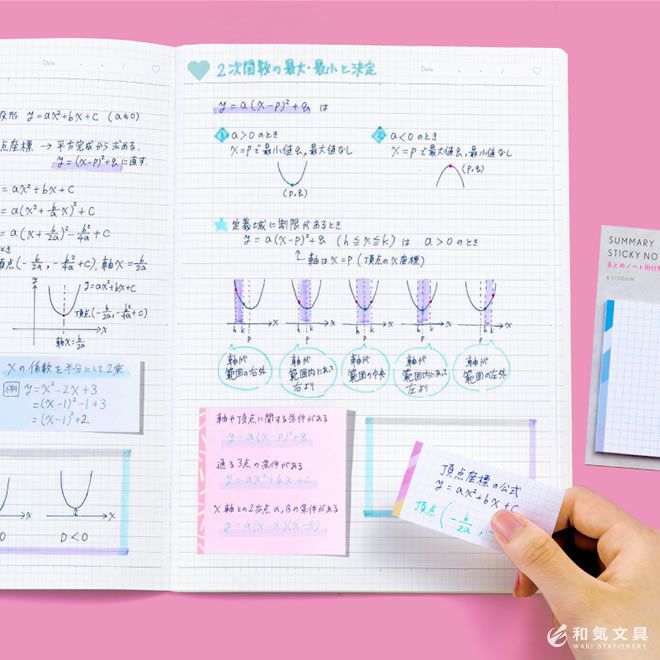 y=ax²+bx+c (a≠0)
点座標 → 平方完成から求める.
y=(x-p)²+q に直す.
=ax²+bx+c
=a(x²+b/a x)²+c
=a(x+b/2a)²-b²/4a+c
とき
頂点(-b/2a, -b²/4a+c), 軸x=-b/2a
y=ax²+bx+c
頂点(-b/2a, -b²/4a+c)
x
軸x=-b/2a
xの係数を半分にして2乗
例 y=x²-2x+3
=(x-1)²-1+3
=(x-1)²+2
x
x
D<0
Date
2次関数の最大・最小と決定
Date
y=a(x-p)²+q は
① a>0のとき
x=pで最小値q, 最大値なし
(p,q)
② a<0のとき
x=pで最大値q, 最小値なし
(p,q)
定義域に制限があるとき
y=a(x-p)²+q (h≦x≦k) は a>0のとき
軸はx=p (頂点のx座標)
h k x
p
h k x
p
h k x
p
h k x
p
h k x
p
軸が
範囲の右外
軸が
範囲内にあって
右より
軸が
範囲の中央
軸が
範囲内にあって
左より
軸が
範囲の左外
軸や頂点に関する条件がある
y=a(x-p)²+q
通る3点の条件がある
y=ax²+bx+c
x軸との2交点α,βの条件がある
y=a(x-α)(x-β)
頂点座標の公式
y=ax²+bx+c
頂点(-b/2a, -
SUMMARY
STICKY NO
まとめノート用付箋
和気文具
WAKI STATIONERY